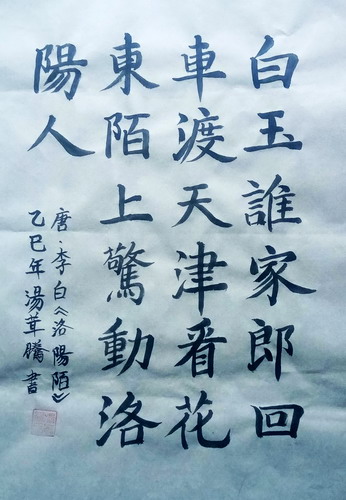 白玉誰家郎回
車渡天津看花
東陌上驚動洛
陽人
唐·李白《洛陽陌》
乙巳年湯葦騰書